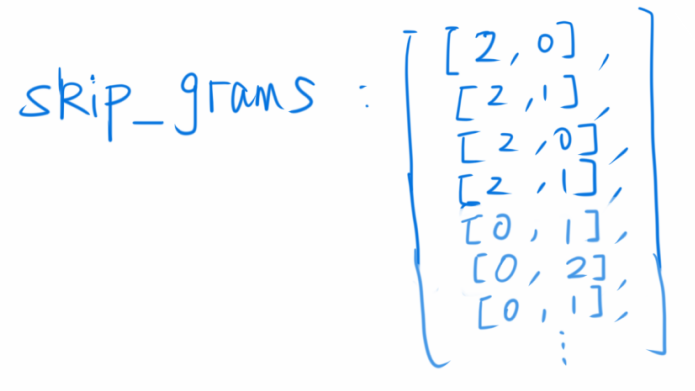 skip_grams : [ [2,0],
[2,1],
[2,0],
[2,1],
[0,1],
[0,2],
[0,1],
⋮ ]